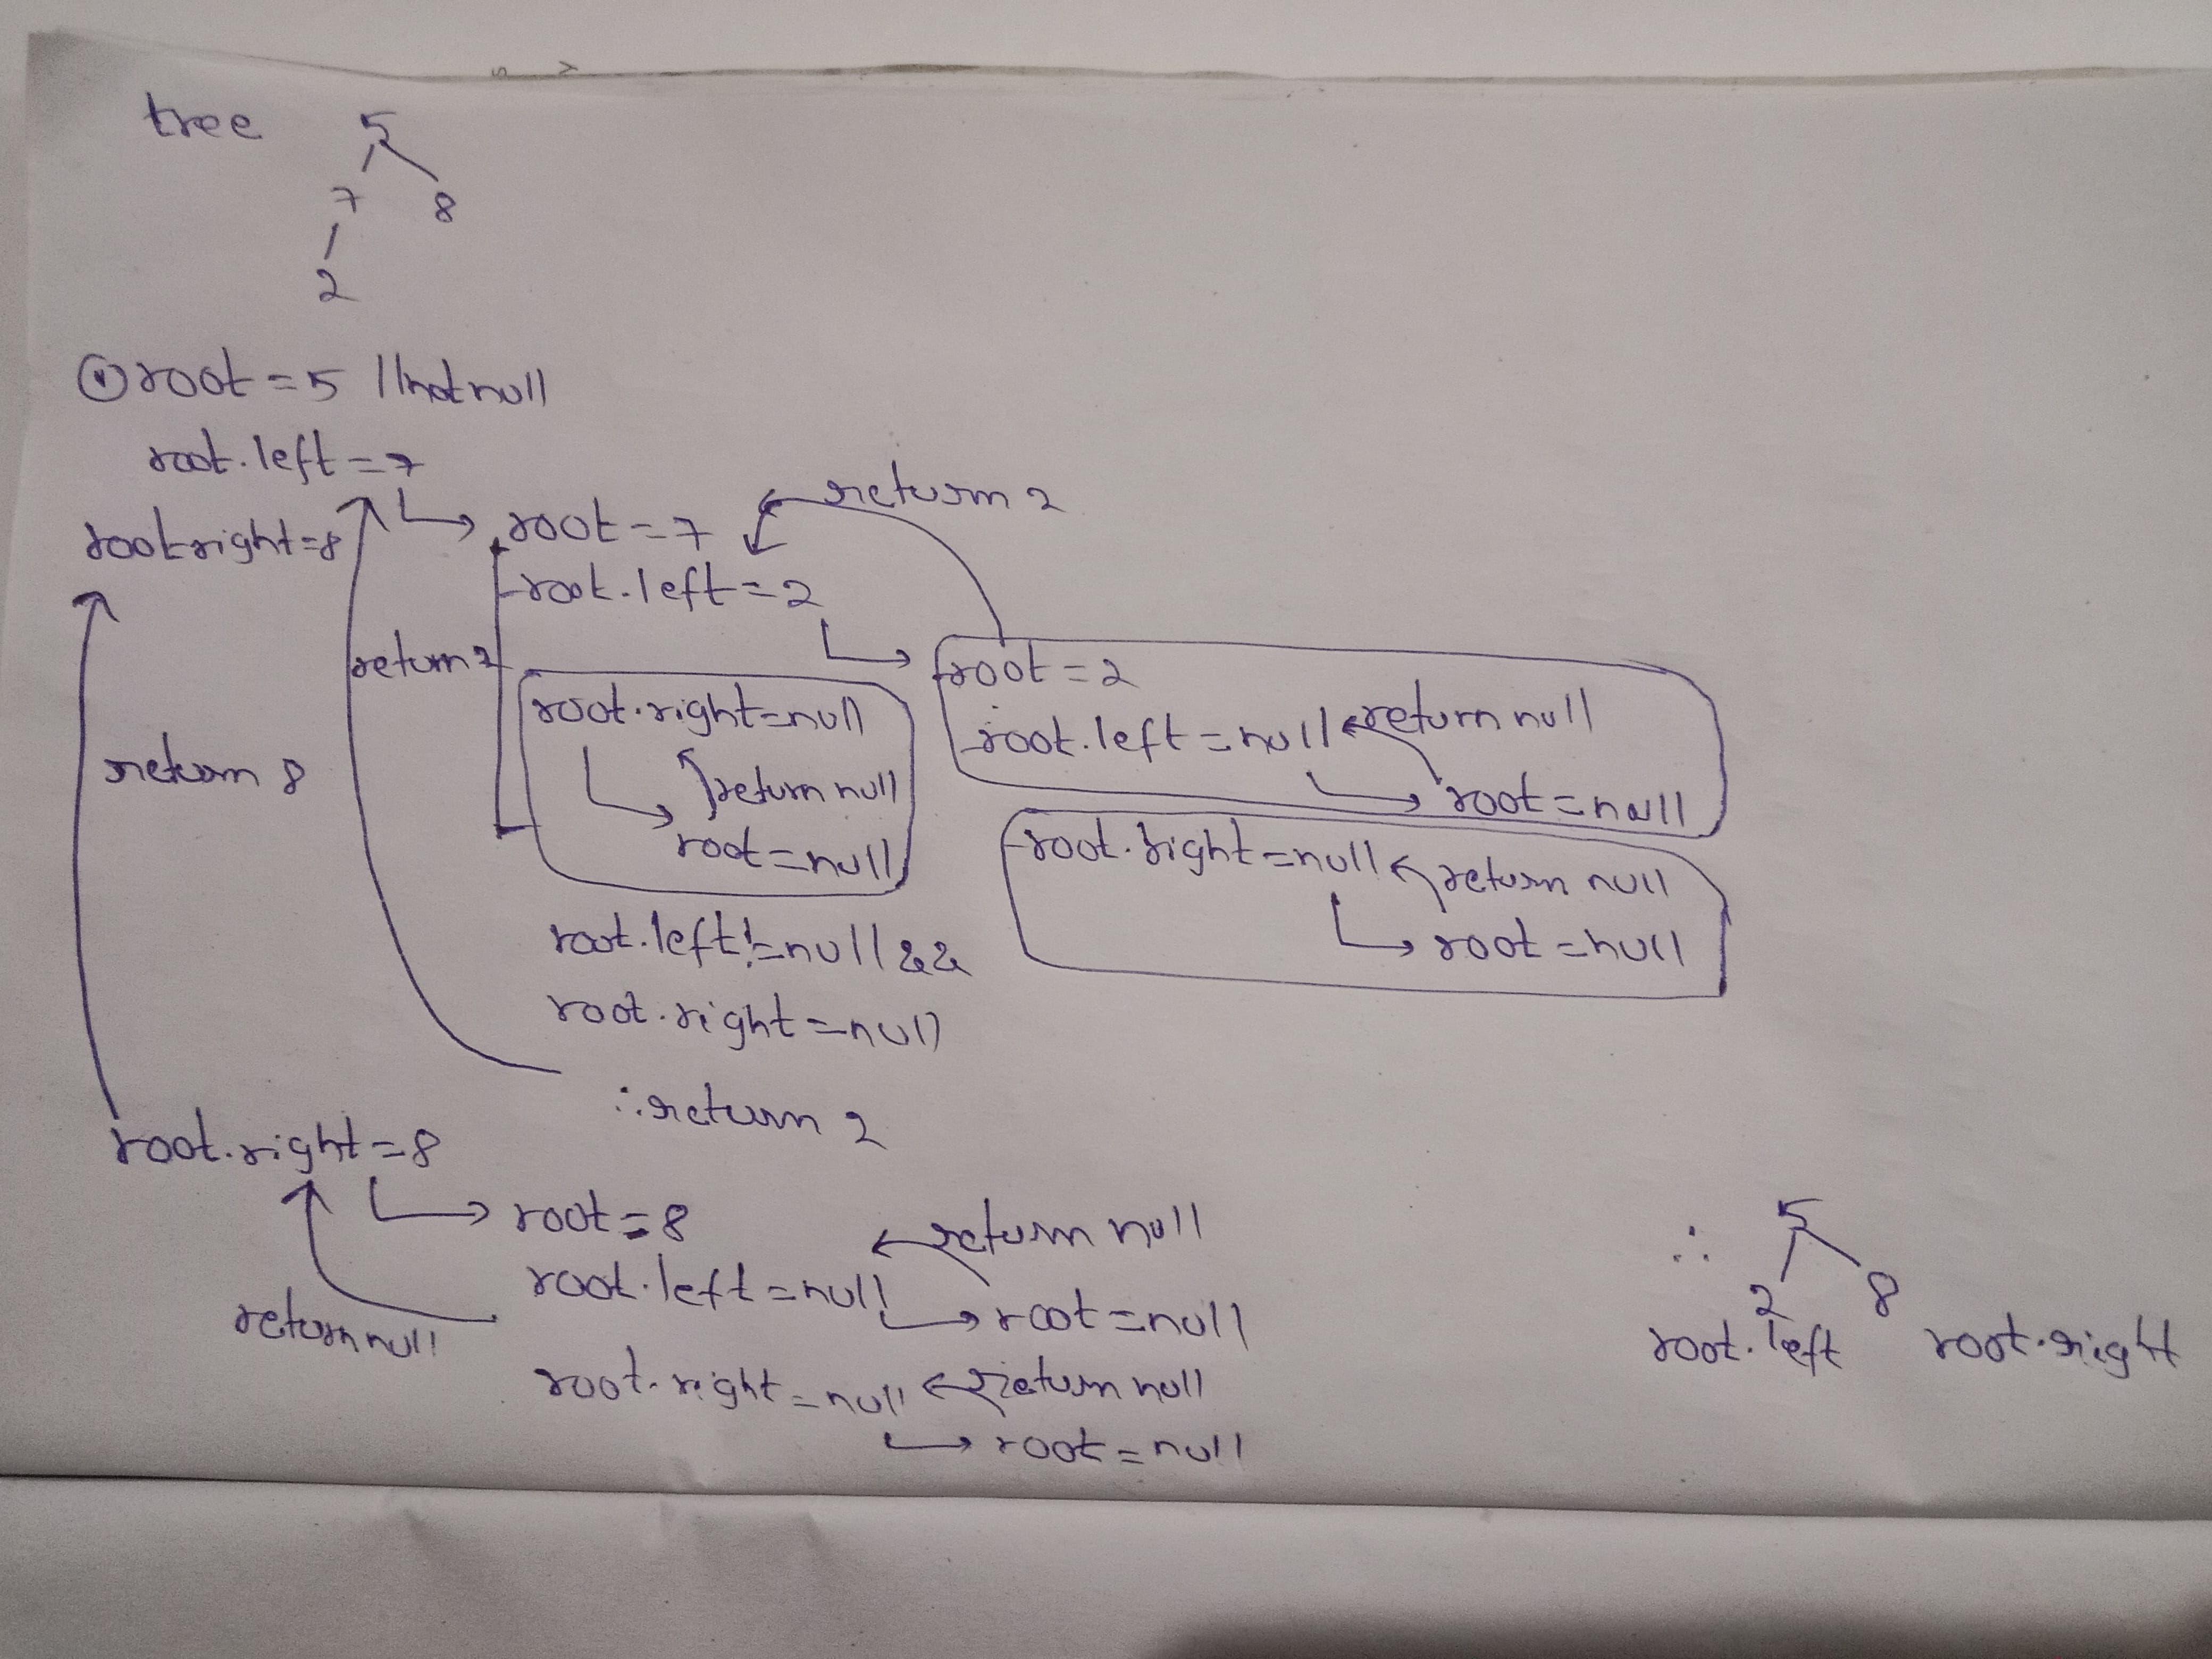 tree 5
7 8
2
① root = 5 // not null
root.left = 7
root right = 8
root = 7
return 2
root.left = 2
return 2
root = 2
root.left = null return null
root = null
root.right = null
return null
root = null
root.right = null return null
root = null
root.left != null &&
root.right = null
∴ return 2
return 8
root.right = 8
root = 8
return null
root.left = null
root = null
return null
root.right = null return null
root = null
∴ 5
2 8
root.left root.right